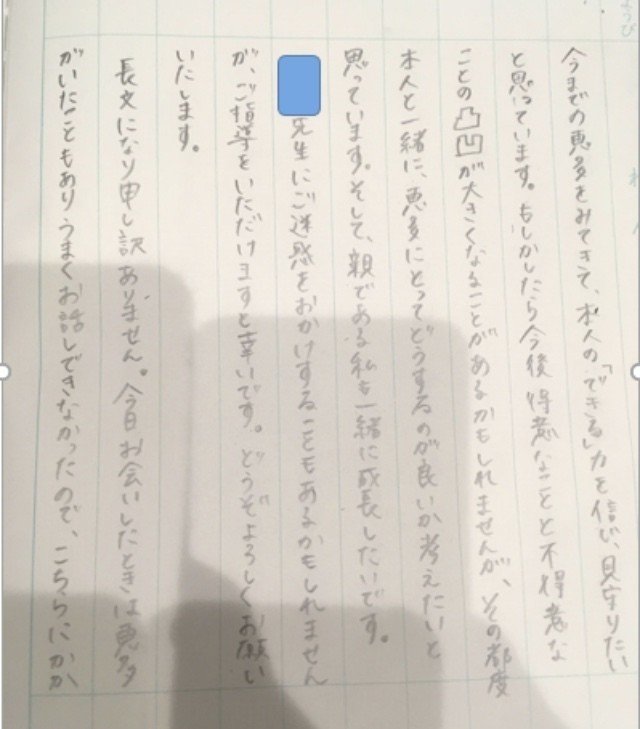 今までの恵多をみてきて、本人の「できる」力を信じ、見守りたい
と思っています。もしかしたら今後得意なことと不得意な
ことの凸凹が大きくなることがあるかもしれませんが、その都度
本人と一緒に、恵多にとってどうするのが良いか考えたいと
思っています。そして、親である私も一緒に成長したいです。
先生にご迷惑をおかけすることもあるかもしれません
が、ご指導をいただけますと幸いです。どうぞよろしくお願い
いたします。
長文になり申し訳ありません。今日お会いしたときは恵多
がいたこともありうまくお話しできなかったので、こちらにかか